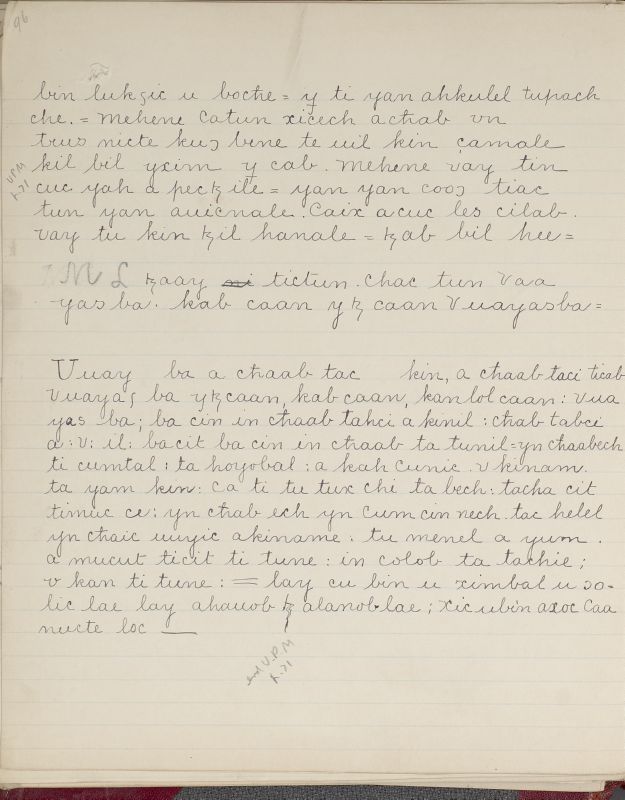 96
bin lukɜic u boche = y ti yan ahkulel tupach
che. = mehene Catun xicech achab vn
tzus nicte kuɔ bene te uil kin camale
kil bil yxim y cab. mehene vay tin
cuc yah a pecꜩ ile = yan yan cooɔ tiac
tun yan auicnale. Caix acuc les cilab.
vay tu kin ꜩil hanale = ꜩab bil hee =
ꜩaay tictun. chac tun Vaa
yas ba. kab caan yꜩ caan Vuayasba =
Vuay ba a chaab tac kin, a chaab taci ticab
Vuayaɜ ba yꜩcaan, kab caan, kan lol caan : Vua
yas ba; ba cin in chaab tahci a kinil : chab tabci
a : v : il : bacit ba cin in chaab ta tunil = yn chaabech
ti cumtal : ta hoyobal : a kah cunic . v kinam.
ta yam kin : ca ti tu tux chi ta bech : tacha cit
timuc ce : yn chab ech yn cum cin nech. tac helel
yn chaic uuyic akiname : tu menel a yum .
a mucut ticit ti tune : in colob ta tachie ;
v kan ti tune : = lay cu bin u ximbal u ɔo-
lic lae lay ahauob ꜩ alanob lae ; xic ubin axoc Caa
nucte loc —
end U.P.M